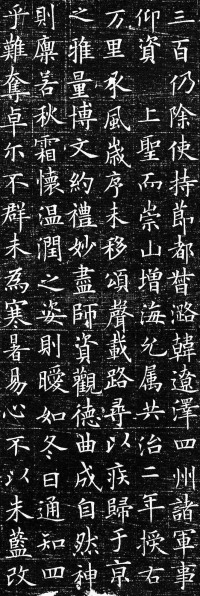 三百仍除使持節都督潞韓遼澤四州諸軍事
仰資上聖而崇山增海允属共治二年授右
万里承風歲序未移頌聲載路尋以疾歸于京
之雅量博文約禮妙盡師資觀德曲成自然神
則廩若秋霜懷温潤之姿則曖如冬日通知四
乎難奪卓尓不群未為寒暑易心不以未蓋改